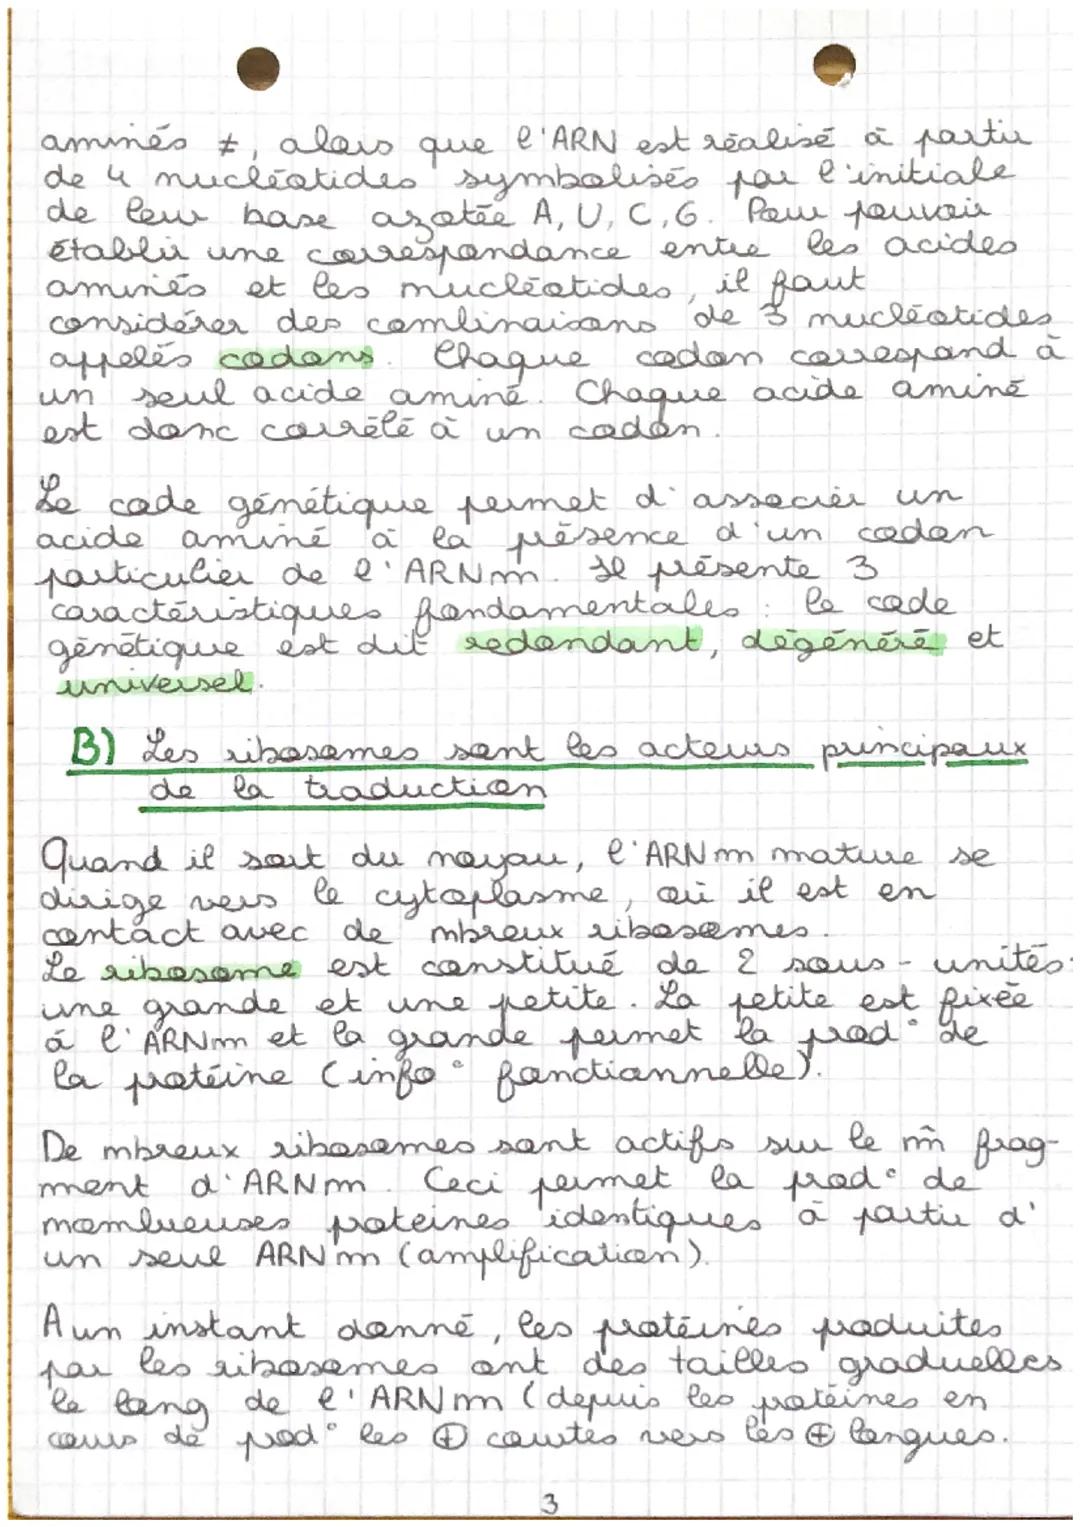 aminés ≠, alors que l'ARN est réalisé à partir
de 4 nucléotides symbolisés par l'initiale
de leur base azotée A, U, C, G. Pour pouvoir
établir une correspondance entre les acides
aminés et les nucléotides, il faut
considérer des combinaisons de 3 nucléotides
appelés codons. Chaque codon correspond à
un seul acide aminé. Chaque acide aminé
est donc corrélé à un codon.
Le code génétique permet d'associer un
acide aminé à la présence d'un codon
particulier de l'ARNm. Il présente 3
caractéristiques fondamentales : le code
génétique est dit redondant, dégénéré et
universel.
B) Les ribosomes sont les acteurs principaux
de la traduction
Quand il sort du noyau, l'ARNm mature se
dirige vers le cytoplasme, où il est en
contact avec de nbreux ribosomes.
Le ribosome est constitué de 2 sous-unités:
une grande et une petite. La petite est fixée
à l'ARNm et la grande permet la prod° de
la protéine (info° fonctionnelle).
De nbreux ribosomes sont actifs sur le m̂ frag-
ment d'ARNm. Ceci permet la prod° de
nombreuses proteines identiques à partir d'
un seul ARNm (amplification).
A un instant donné, les protéines produites
par les ribosomes ont des tailles graduelles
le long de l'ARNm (depuis les protéines en
cours de prod° les ⊕ courtes vers les ⊕ longues.
3